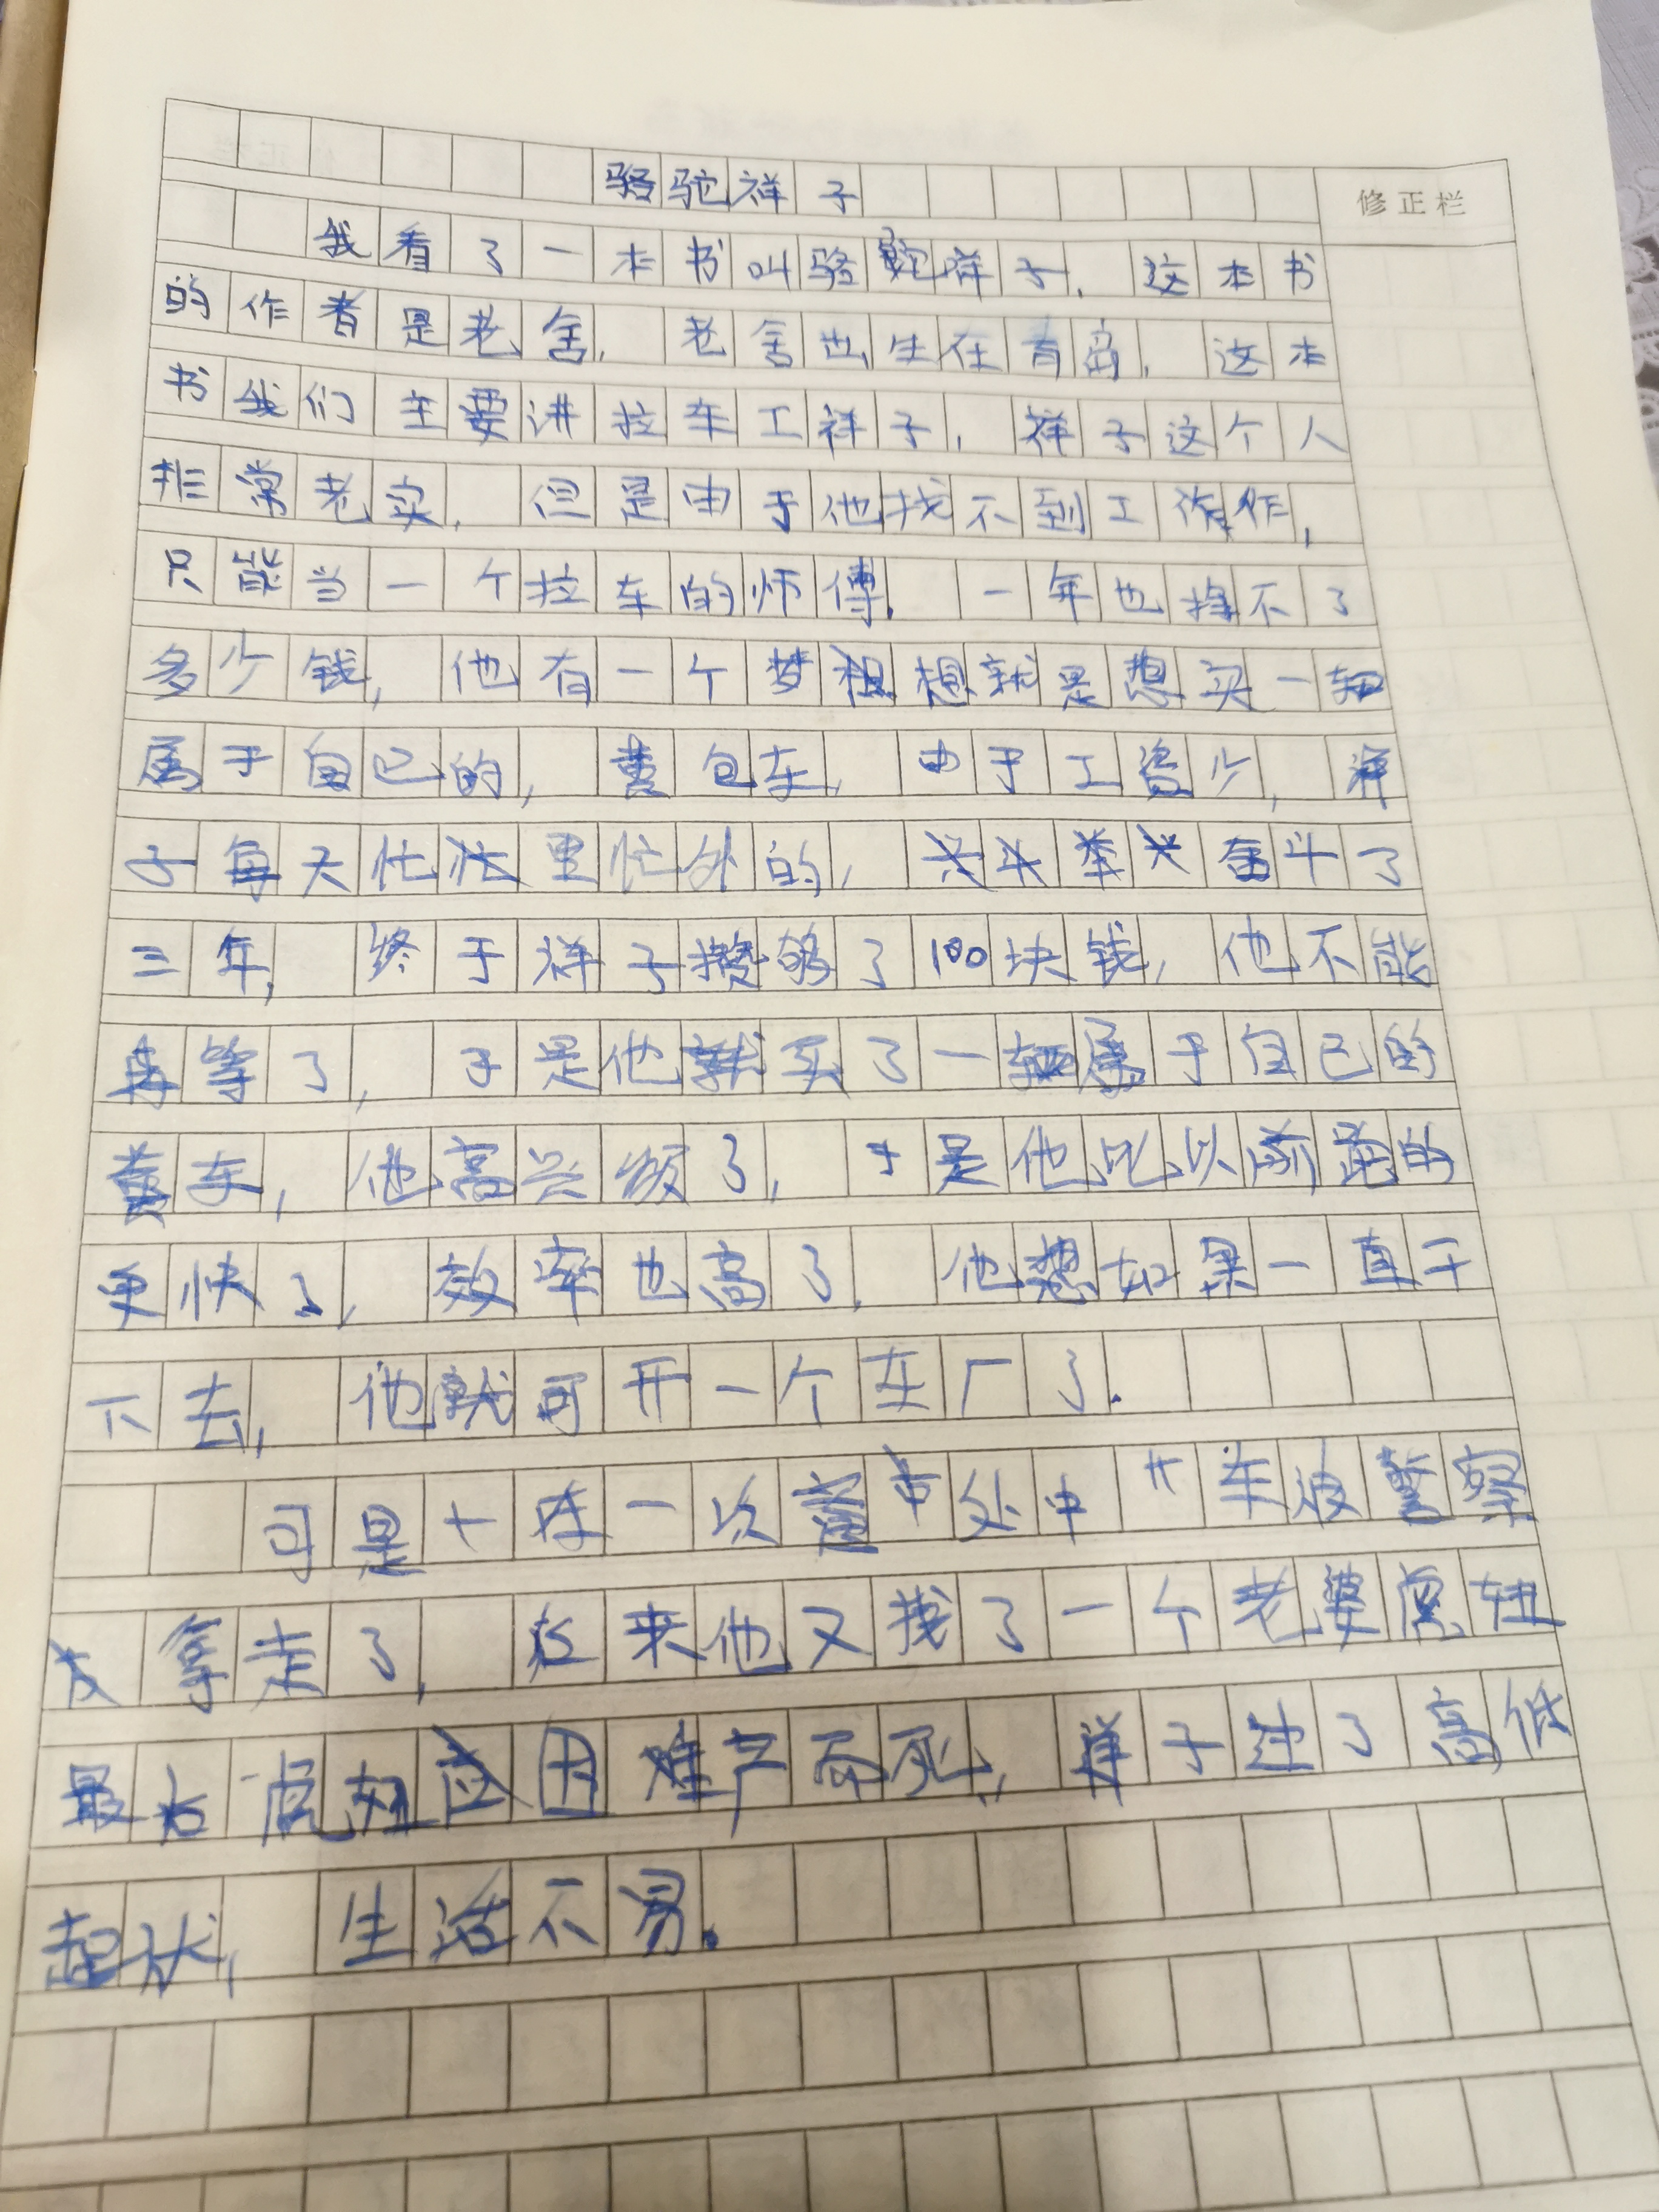 骆驼祥子
修正栏
我看了一本书叫骆驼祥子,这本书
的作者是老舍,老舍也生在青岛,这本
书我们主要讲拉车工祥子,祥子这个人
非常老实,但是由于他找不到工作,
只能当一个拉车的师傅,一年也挣不了
多少钱,他有一个梦想就是想买一辆
属于自己的,黄包车,由于工资少,祥
子每天忙里忙外的,奋斗了
三年,终于祥子攒够了100块钱,他不能
再等了,于是他就买了一辆属于自己的
黄车,他高兴极了,于是他比以前跑的
更快了,效率也高了,他想如果一直干
下去,他就可开一个车厂了.
可是十一次处中开车被警察
拿走了,后来他又找了一个老婆虎妞
最后虎妞因难产而死,祥子过了高低
起伏,生活不易.